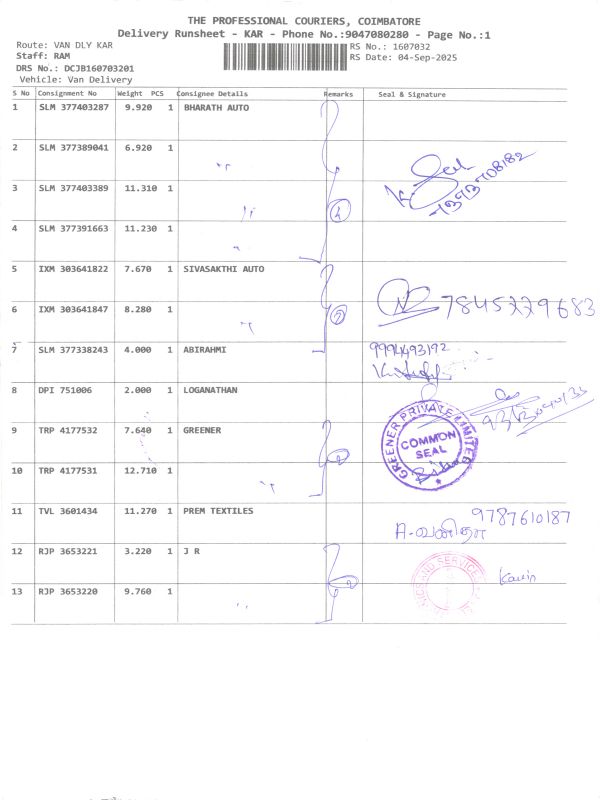 THE PROFESSIONAL COURIERS, COIMBATORE
Delivery Runsheet - KAR - Phone No.:9047080280 - Page No.:1
Route: VAN DLY KAR RS No.: 1607032
Staff: RAM RS Date: 04-Sep-2025
DRS No.: DCJB160703201
Vehicle: Van Delivery
S No Consignment No Weight PCS Consignee Details Remarks Seal & Signature
1 SLM 377403287 9.920 1 BHARATH AUTO
2 SLM 377389041 6.920 1 "
3 SLM 377403389 11.310 1 " 4
4 SLM 377391663 11.230 1 "
5 IXM 303641822 7.670 1 SIVASAKTHI AUTO
6 IXM 303641847 8.280 1 " 2 7845779683
7 SLM 377338243 4.000 1 ABIRAHMI 9994493192
8 DPI 751006 2.000 1 LOGANATHAN
9 TRP 4177532 7.640 1 GREENER GREENER PRIVATE LIMITED COMMON SEAL
10 TRP 4177531 12.710 1 "
11 TVL 3601434 11.270 1 PREM TEXTILES 9787610187
A-வனிதா
12 RJP 3653221 3.220 1 J R AND SERVICES Kavin
13 RJP 3653220 9.760 1 "